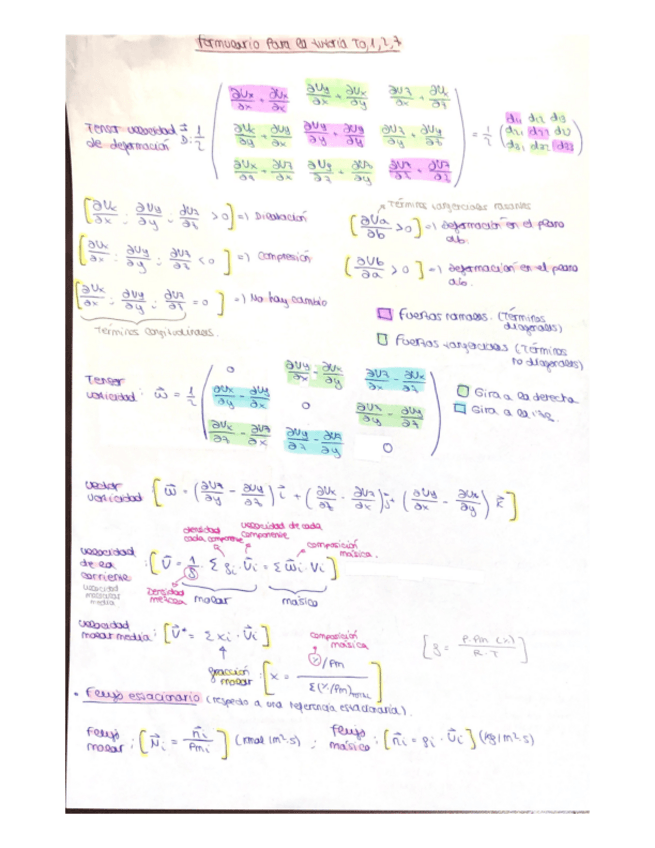 Formulario para la tutoría T0,1,2,7
Tensor velocidad de deformación D: 1/2 ( ∂Ux/∂x + ∂Ux/∂x   ∂Uy/∂x + ∂Ux/∂y   ∂Uz/∂x + ∂Ux/∂z
∂Ux/∂y + ∂Uy/∂x   ∂Uy/∂y + ∂Uy/∂y   ∂Uz/∂y + ∂Uy/∂z
∂Ux/∂z + ∂Uz/∂x   ∂Uy/∂z + ∂Uz/∂y   ∂Uz/∂z + ∂Uz/∂z ) = 1/2 ( d11 d12 d13
d21 d22 d23
d31 d32 d33 )
[ ∂Ux/∂x ; ∂Uy/∂y ; ∂Uz/∂z > 0 ] => Dilatación
[ ∂Ux/∂x ; ∂Uy/∂y ; ∂Uz/∂z < 0 ] => Compresión
[ ∂Ux/∂x ; ∂Uy/∂y ; ∂Uz/∂z = 0 ] => No hay cambio
Términos longitudinales.
Términos tangenciales rasantes
( ∂Ua/∂b > 0 ] => deformación en el plano ab.
( ∂Ub/∂a > 0 ] => deformación en el plano ab.
Fuerzas normales. (Términos diagonales)
Fuerzas tangenciales (Términos no diagonales)
Tensor vorticidad: ω = 1/2 ( 0   ∂Uy/∂x - ∂Ux/∂y   ∂Uz/∂x - ∂Ux/∂z
∂Ux/∂y - ∂Uy/∂x   0   ∂Uz/∂y - ∂Uy/∂z
∂Ux/∂z - ∂Uz/∂x   ∂Uy/∂z - ∂Uz/∂y   0 )
Gira a la derecha
Gira a la izq.
Vector vorticidad [ ω = ( ∂Uz/∂y - ∂Uy/∂z ) i + ( ∂Ux/∂z - ∂Uz/∂x ) j + ( ∂Uy/∂x - ∂Ux/∂y ) k ]
densidad cada componente
velocidad de cada componente
composición másica.
velocidad de la corriente : [ U = 1/ρ · Σ ρi · Ui = Σ ωi · Vi ]
velocidad
media
Densidad mezcla
molar
másico
velocidad molar media : [ U* = Σ xi · Ui ]
fracción molar : [ x = /Pm / Σ(/Pm)total ]
composición másica
[ ρ = P·Pm (x) / R·T ]
• Flujo estacionario (respecto a una referencia estacionaria).
Flujo molar : [ Ni = ni / Pmi ] (kmol/m²·s) ; Flujo másico : [ ni = ρi · Ui ] (kg/m²·s)